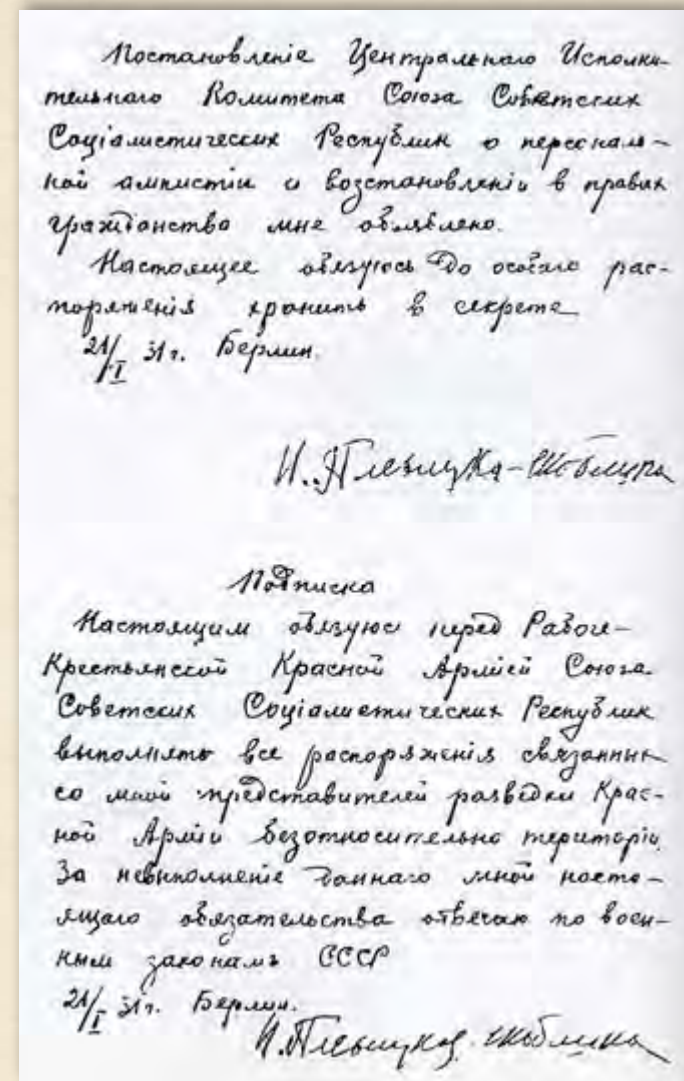 Постановленіе Центральнаго Исполни-
тельнаго Комитета Союза Советских
Соціалистических Республик о персональ-
ной амнистіи и возстановленіи в правах
гражданства мне объявлено.
Настоящее обязуюсь до особаго рас-
поряженія хранить в секрете
21/I 31 г. Берлин.
Н. Плевицкая-Скоблина
Подписка
Настоящим обязуюсь перед Рабоче-
Крестьянской Красной Арміей Союза
Советских Соціалистических Республик
выполнять все распоряженія связанных
со мной представителей разведки Крас-
ной Арміи безотносительно територіи.
За невыполненіе даннаго мной насто-
ящаго обязательства отвечаю по воен-
ным законамъ СССР
21/I 31 г. Берлин.
Н. Плевицкая-Скоблина